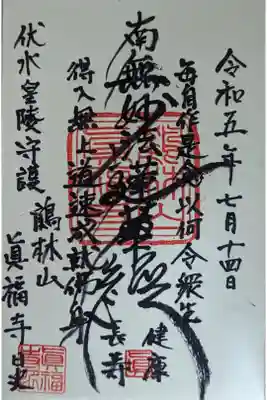 令和五年七月十四日
毎自作是念以何令衆生
健康
長寿
南無妙法蓮華経
得入無上道速成就佛身
伏水皇陵守護 鶴林山
眞福寺